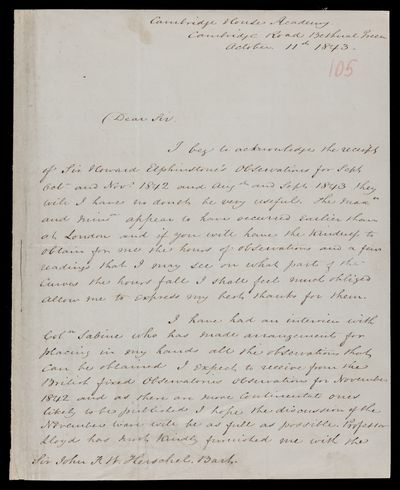 Cambridge House Academy
Cambridge Road Bethnal Green
October 11th 1843.
105
Dear Sir
I beg to acknowledge the receipt
of Sir Howard Elphinstone's Observations for Sept
Octr and Novr 1842 and Augt and Sept 1843 they
will I have no doubt be very useful. The maxm
and minm appear to have occurred earlier than
at London and if you will have the kindness to
obtain for me the hours of observations and a few
readings that I may see on what part of the
Curves the hours fall I shall feel much obliged
allow me to express my best thanks for them.
I have had an interview with
Coln Sabine who has made arrangement for
placing in my hands all the observations that
can be obtained I expect to receive from the
British fixed Observatories Observations for November
1842 and as there are more Continental ones
likely to be published I hope the discussion of the
November wave will be as full as possible. Professor
Lloyd has most kindly furnished me with the
Sir John F. W. Herschel. Bart.